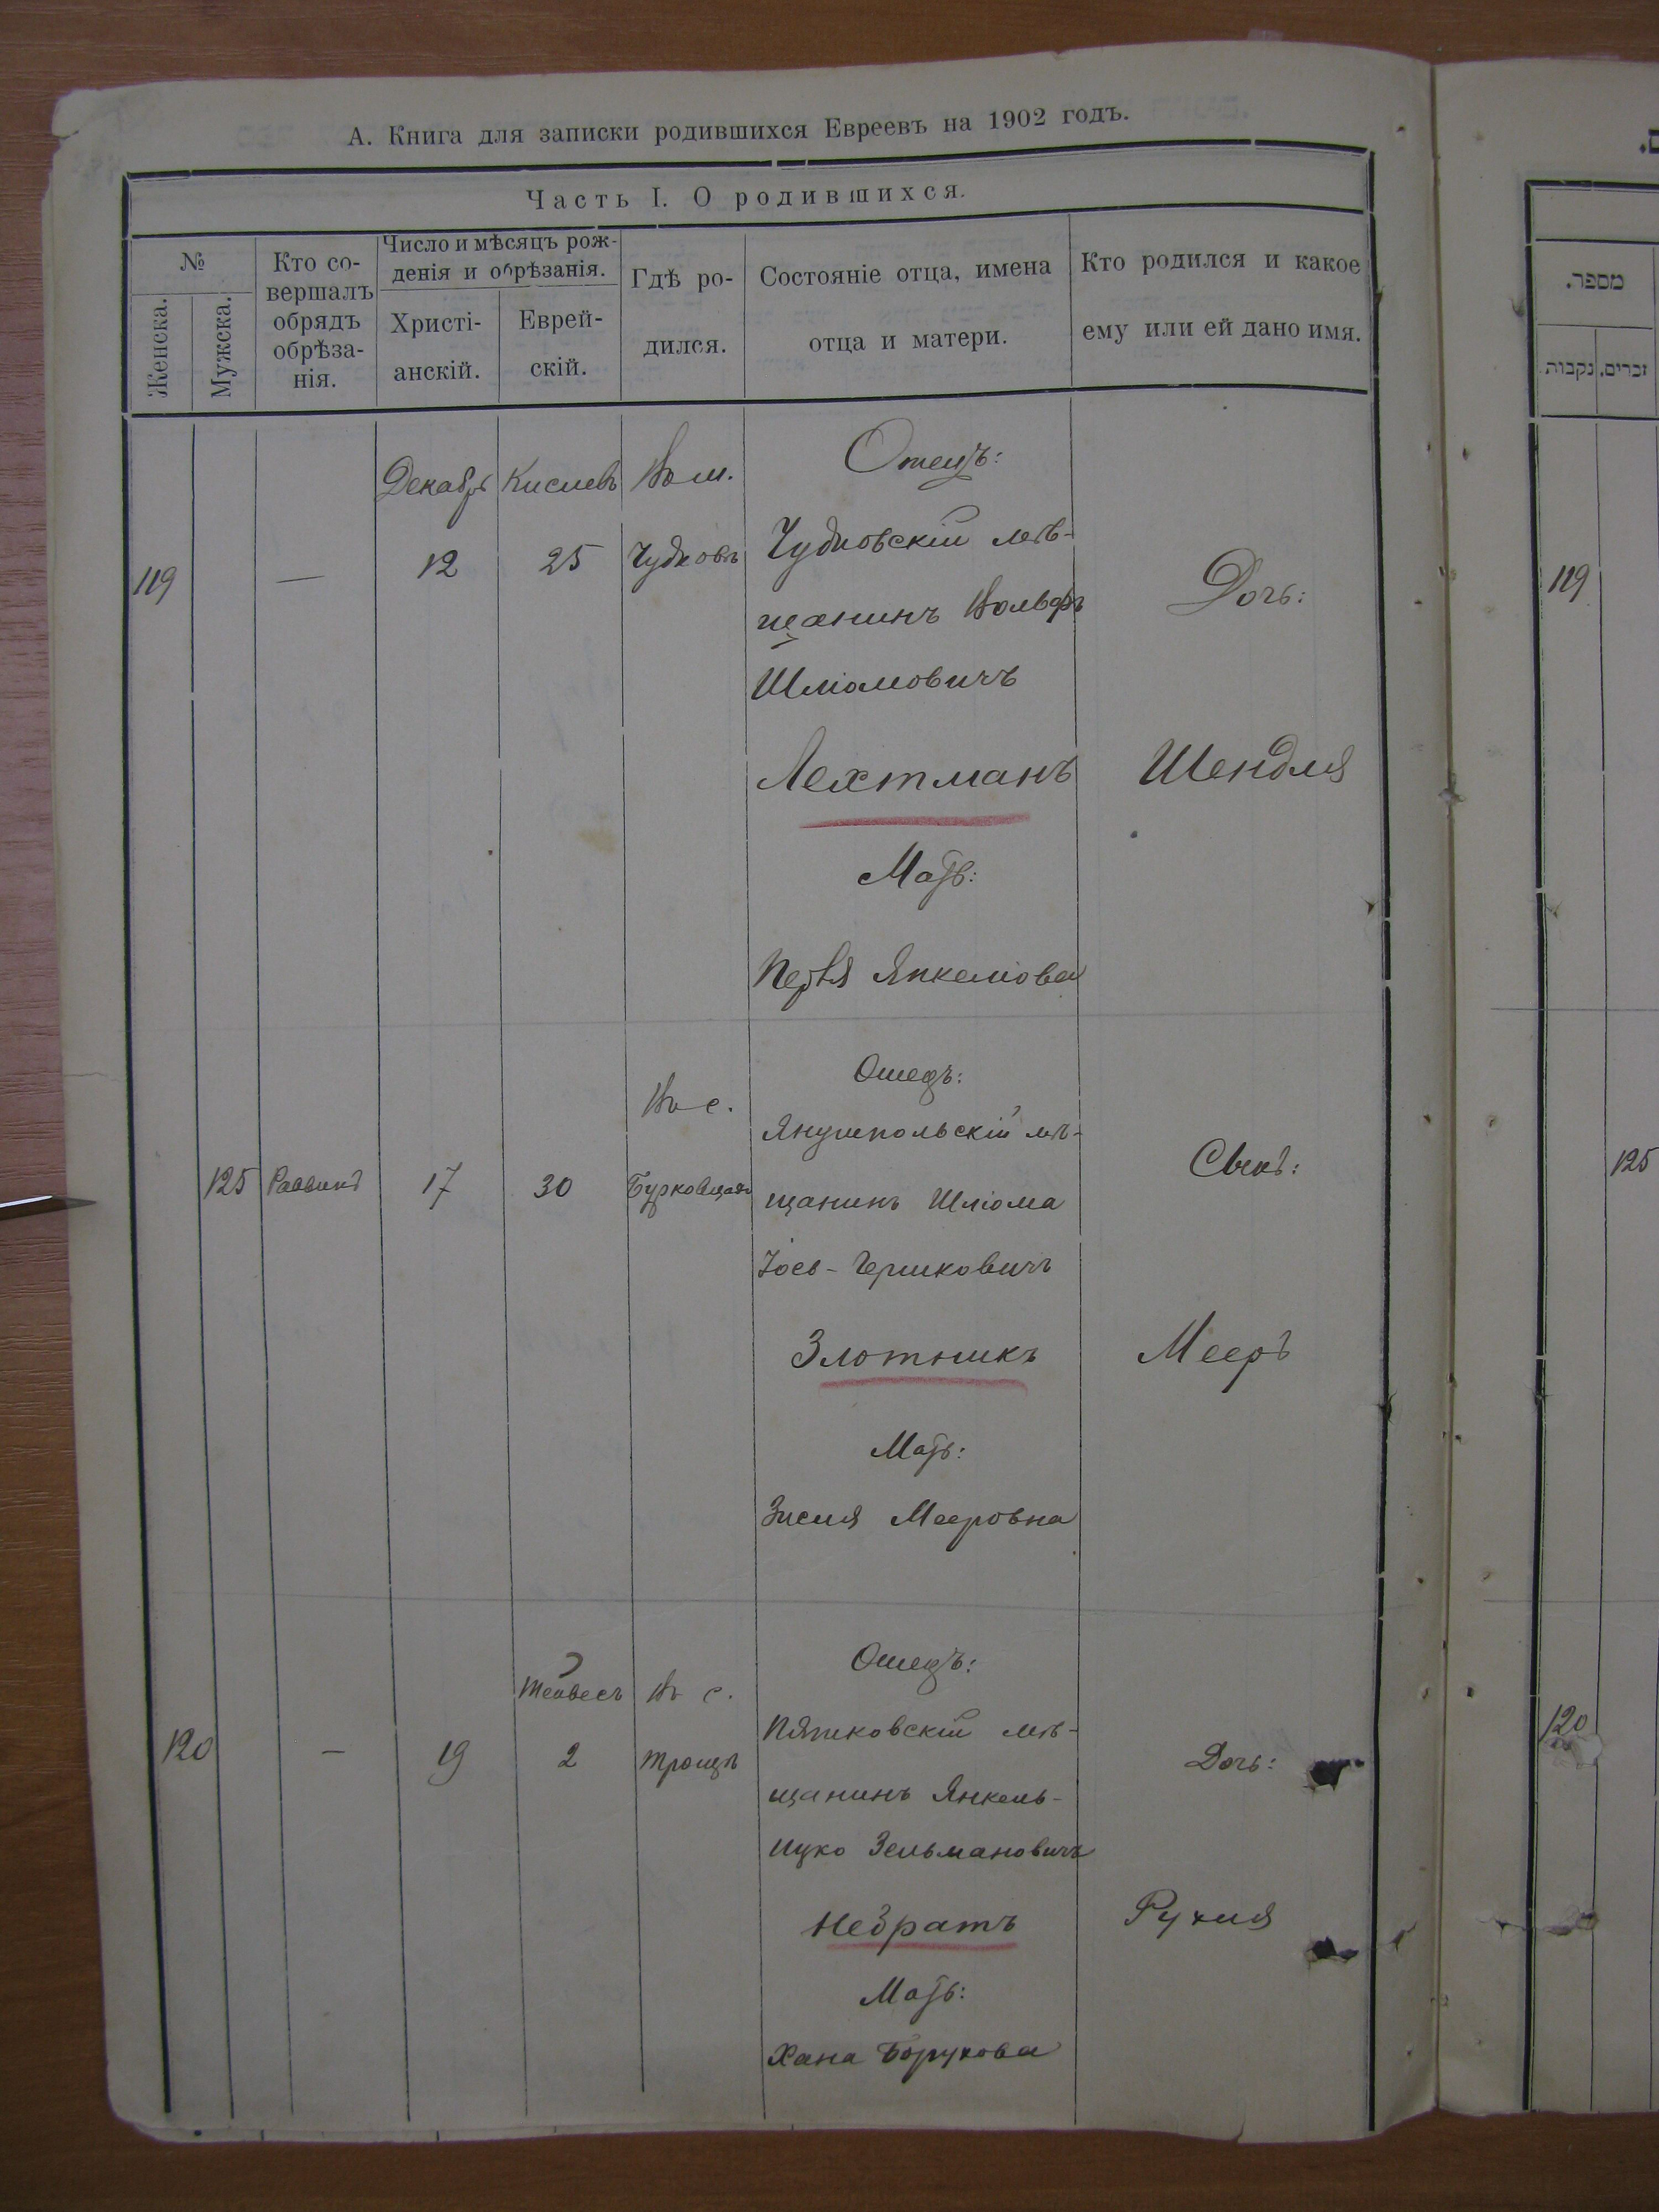 А. Книга для записки родившихся Евреевъ на 1902 годъ.
Часть I. О родившихся.
№
Женска.
Мужска.
Кто со-
вершалъ
обрядъ
обрѣза-
нія.
Число и мѣсяцъ рож-
денія и обрѣзанія.
Христі-
анскій.
Еврей-
скій.
Гдѣ ро-
дился.
Состояніе отца, имена
отца и матери.
Кто родился и какое
ему или ей дано имя.
119
—
Декабрь
12
Кислевъ
25
Въ м.
Чудновъ
Отецъ:
Чудновскій мѣ-
щанинъ Вольфъ
Шліомовичъ
Лехтманъ
Мать:
Янкеліова
Дочь:
Шендля
125
Раввинъ
17
30
Въ с.
Отецъ:
Янушпольскій мѣ-
щанинъ Шліома
Іось-Гершковичъ
Злотникъ
Мать:
Зисля Мееровна
Сынъ:
Мееръ
120
—
19
Тейвесъ
2
Въ с.
Трощѣ
Отецъ:
Пятковскій мѣ-
щанинъ Янкель-
Ицко Зельмановичъ
Мать:
Хана Борухова
Дочь:
Рухля
מספר.
נקבות
זכרים.
119
125
120